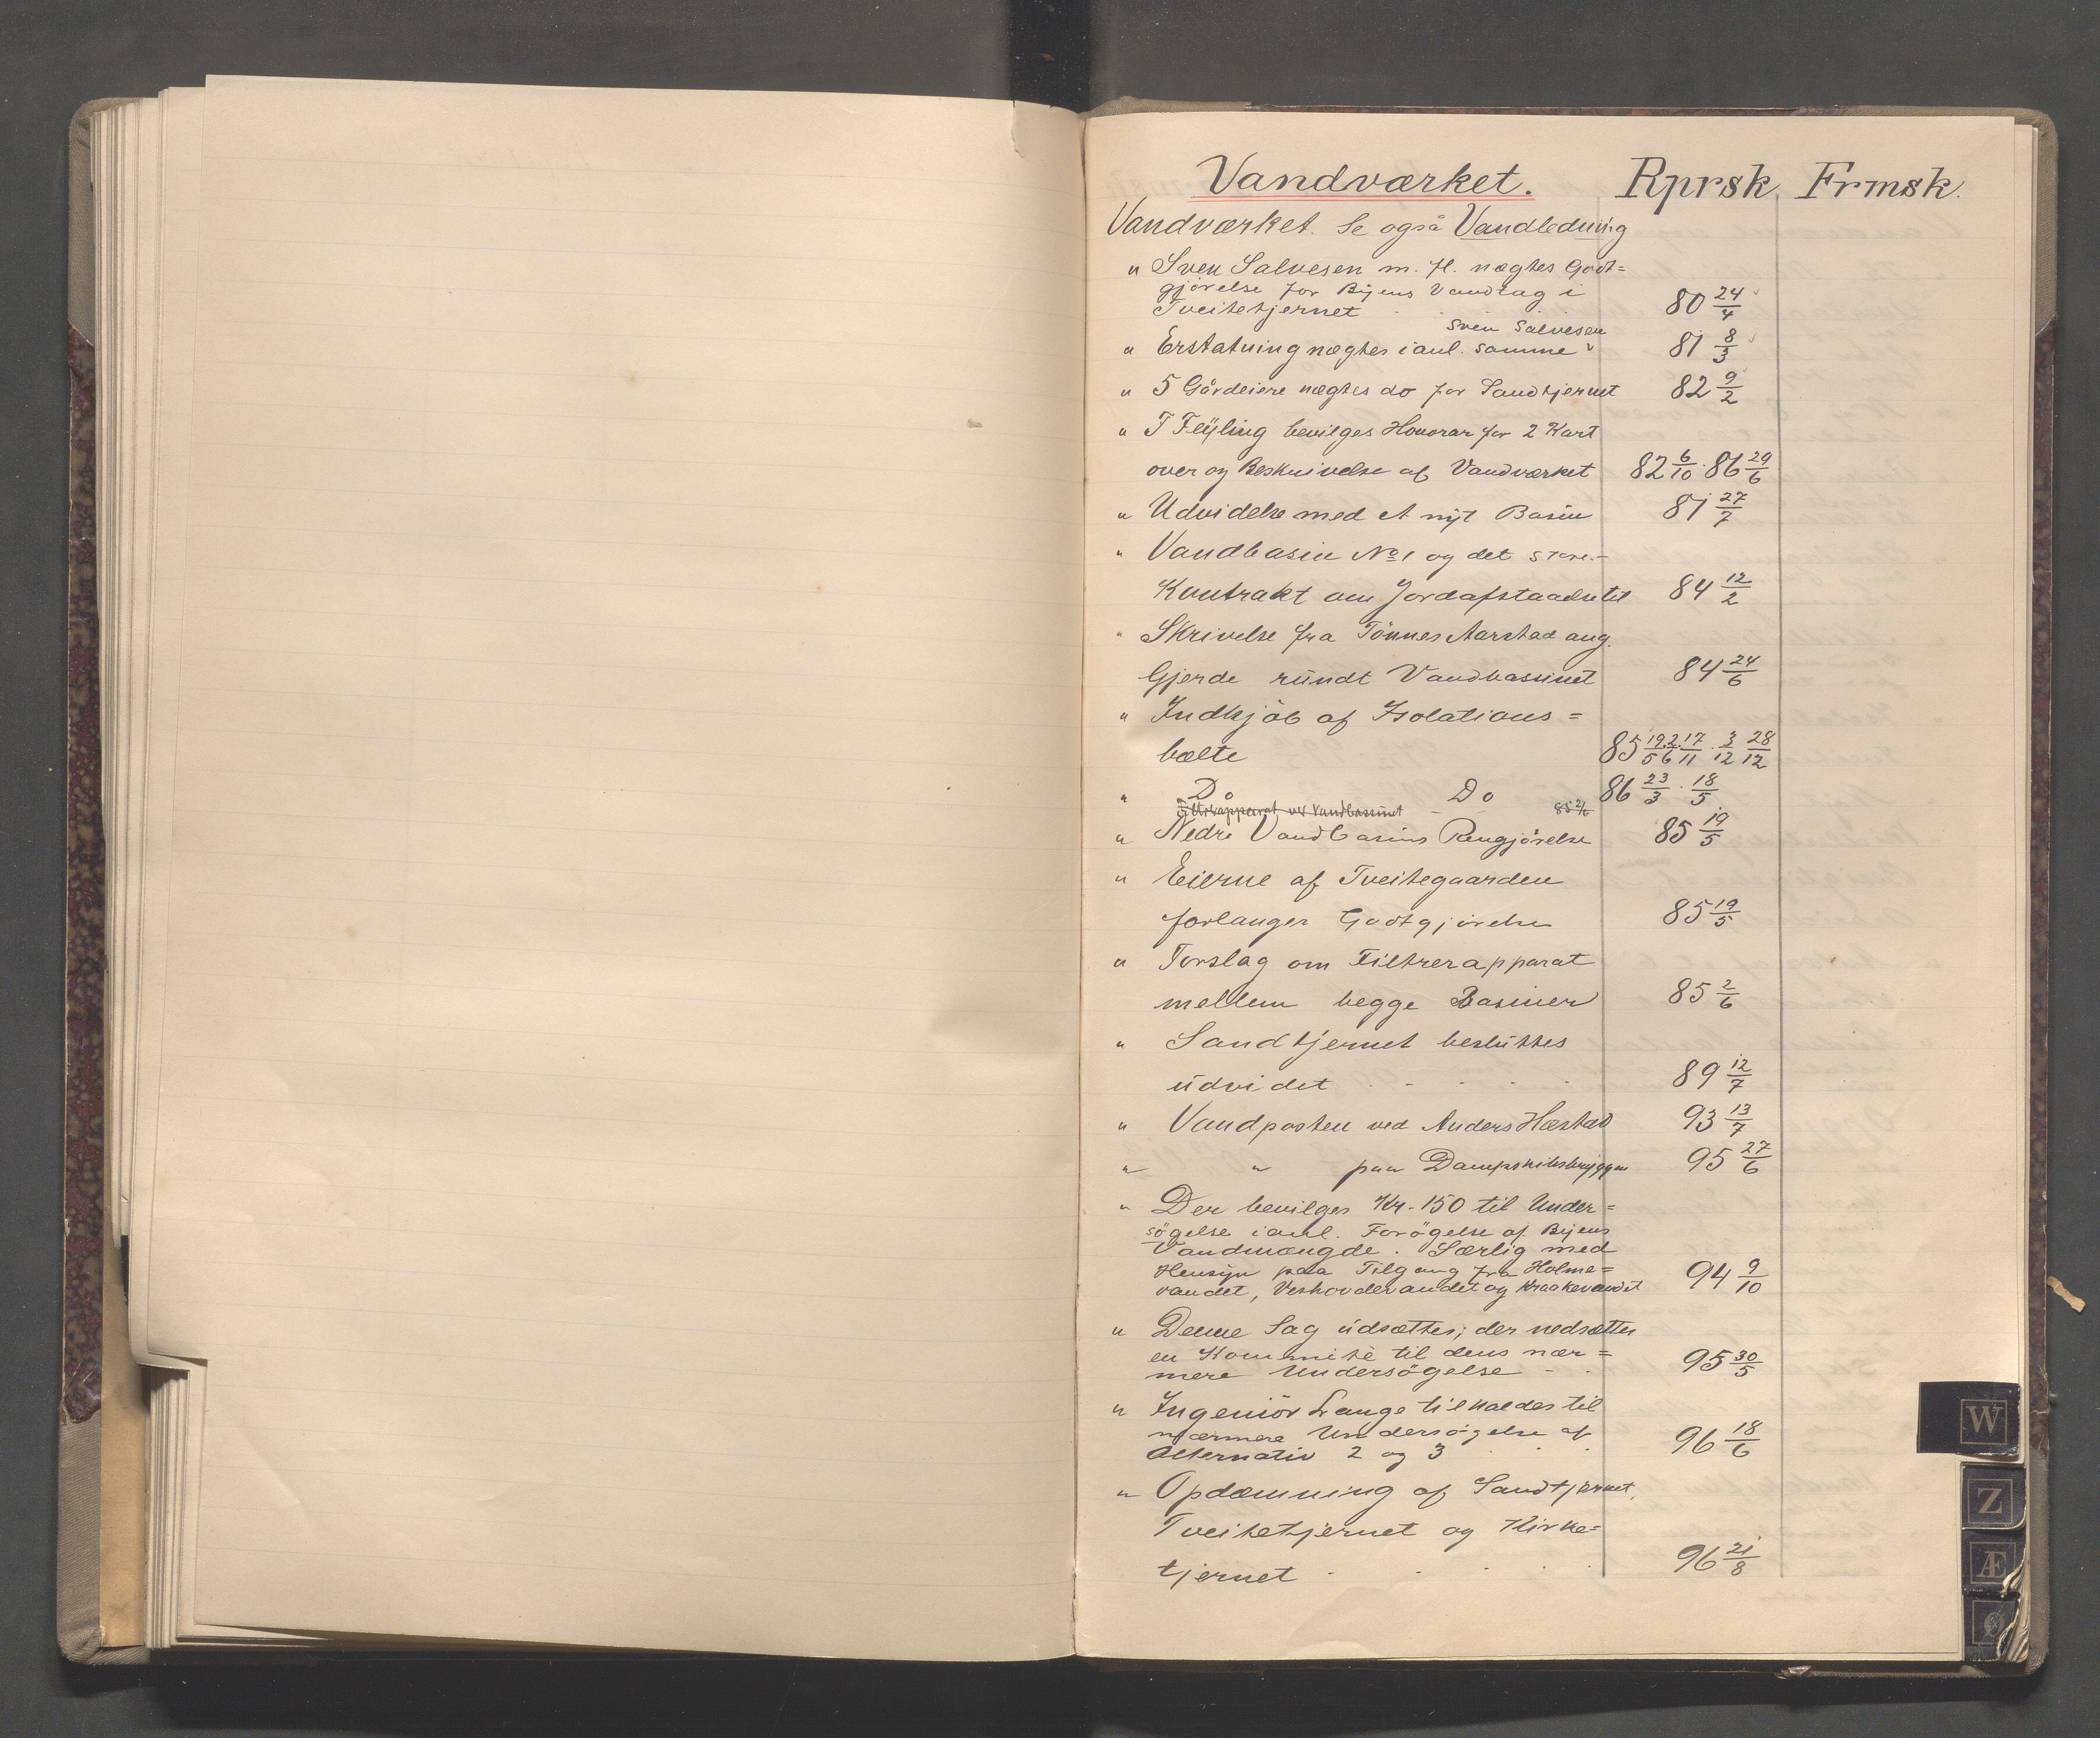 Vandværket. Rprsk. Frmsk.
Vandværket. Se også Vandledning
" Sven Salvesen m. fl. nægtes Godt=
gjörelse for Byens Vandtag i
Tveitetjernet 80 24/4
Sven Salvesen
" Erstatning nægtes i anl. samme 81 8/3
" 5 Gårdeiere nægtes do for Sandtjernet 82 9/2
" T Feÿling bevilges Honorar for 2 Kart
over og Beskrivelse af Vandværket 82 6/10 · 86 29/6
" Udvidelse med et nyt Basin 81 27/7
" Vandbasin No 1 og det store.-
Kontrakt om Jordafstaaelse til 84 12/2
" Skrivelse fra Tönnes Aarstad ang.
Gjerde rundt Vandbassinet 84 24/6
" Indkjöb af Isolations=
bælte 85 19/5 · 2/6 · 17/11 · 3/12 28/12
" Do Do 86 23/3 · 18/5
Filtrerapparat ved Vandbassinet 85 2/6
" Nedre Vandbasins Rengjörelse 85 19/5
" Eierne af Tveitegaarden
forlanger Godtgjörelse 85 19/5
" Forslag om Filtrerapparat
mellem begge Basiner 85 2/6
" Sandtjernet besluttes
udvidet 89 12/7
" Vandposten ved Anders Hæstad 93 13/7
" " paa Dampskibsbryggen 95 27/6
" Der bevilges Kr. 150 til Under=
sögelse i anl. Forögelse af Byens
Vandmængde. Særlig med
Hensyn paa Tilgang fra Holme=
vandet, Veshovdevandet og Kraakevandet 94 9/10
" Denne Sag udsættes; der nedsættes
en Kommité til dens nær=
mere Undersögelse 95 30/5
" Ingeniör Lange tilkaldes til
nærmere Undersögelse af
Alternativ 2 og 3 96 18/6
" Opdæmning af Sandtjernet,
Tveitetjernet og Kirke=
tjernet 96 21/8
W
Z
Æ
Ø